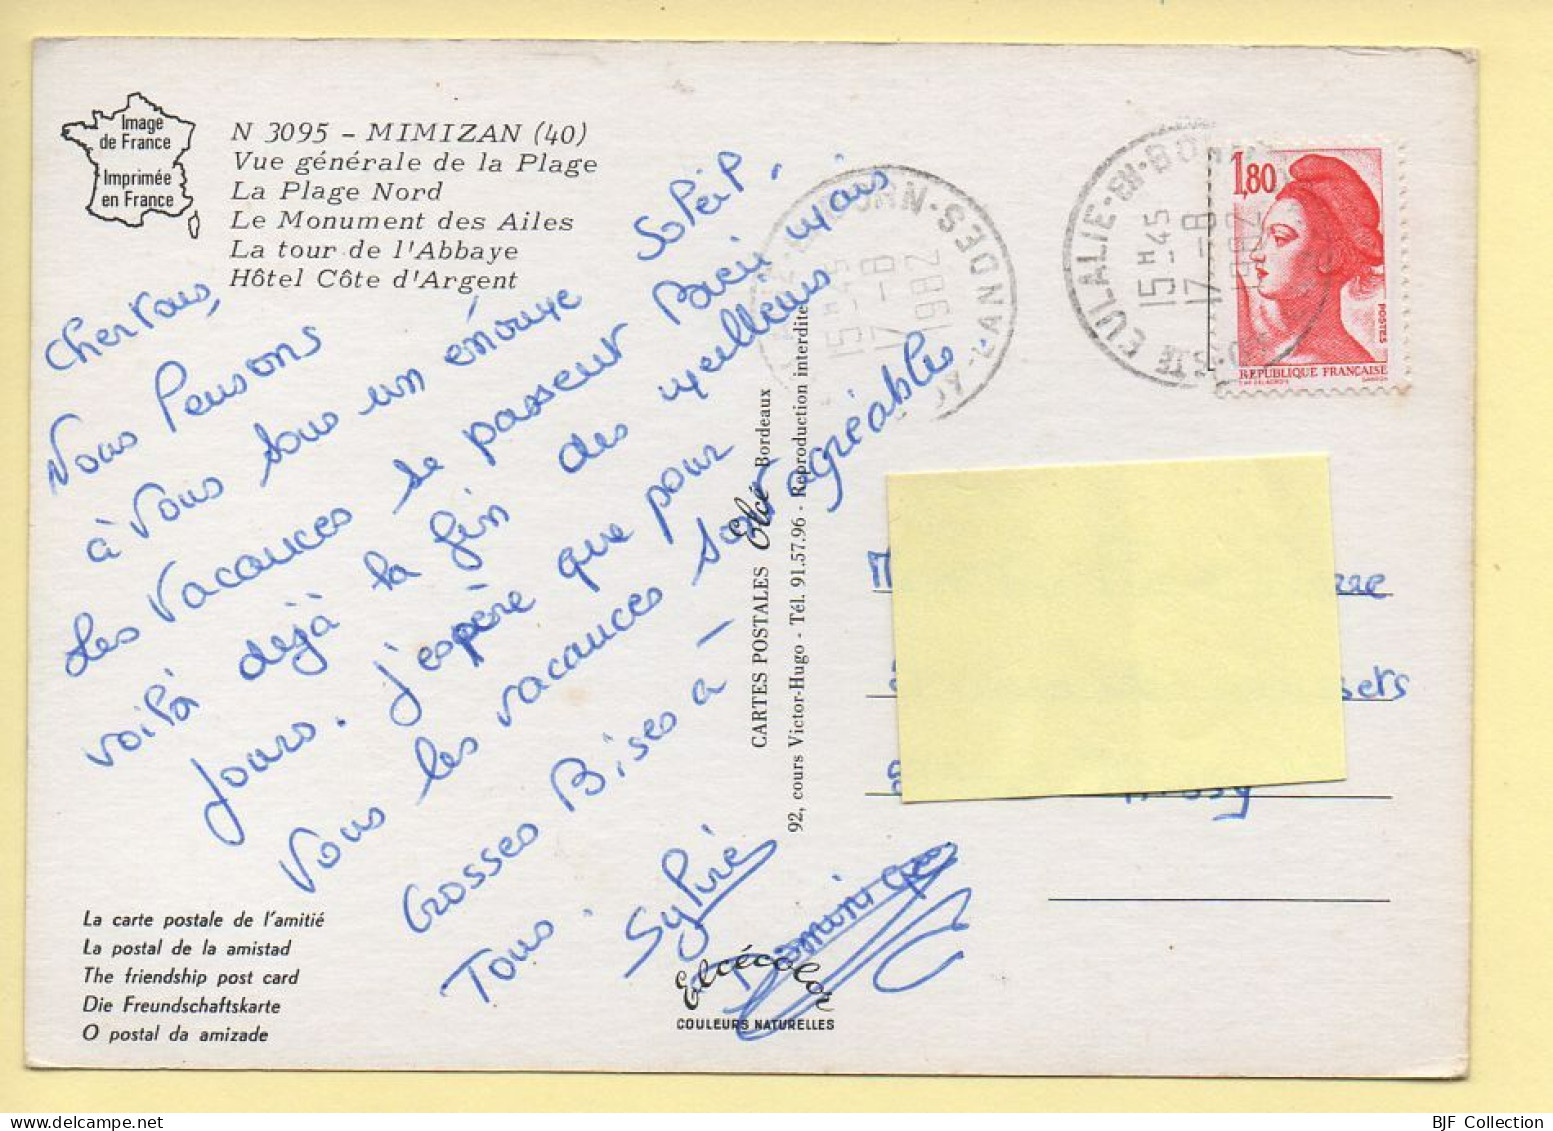 Image
de France
Imprimée
en France
N 3095 - MIMIZAN (40)
Vue générale de la Plage
La Plage Nord
Le Monument des Ailes
La tour de l'Abbaye
Hôtel Côte d'Argent
Chers tous,
Nous Pensons
à Vous sous un énorme Soleil,
Les Vacances se passent Bien mais
voilà déjà la fin des meilleurs
Jours. J'espère que pour
Vous les vacances sont agréables
Grosses Bises à
Tous.
Sylvie
Dominique
CARTES POSTALES Elcé Bordeaux
92, cours Victor-Hugo - Tél. 91.57.96 - Reproduction interdite
STE EULALIE-EN-BORN
15 H 45
17-8
1982
40-LANDES
15 H 45
17-8
1982
1,80
POSTES
REPUBLIQUE FRANÇAISE
La carte postale de l'amitié
La postal de la amistad
The friendship post card
Die Freundschaftskarte
O postal da amizade
Elcécolor
COULEURS NATURELLES
BJF Collection